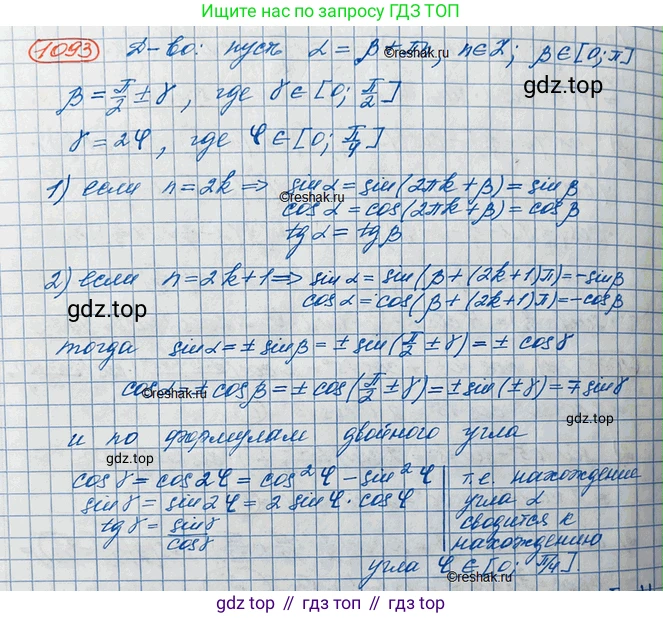 Ищите нас по запросу ГДЗ ТОП
1093 Д-во: пусть α = β + πn, n∈Z; β∈[0;π]
gdz.top
β = π/2 ± γ, где γ∈[0; π/2]
©reshak.ru
γ = 2φ, где φ∈[0; π/4]
1) если n=2k ⇒ sinα = sin(2πk+β) = sinβ
©reshak.ru
cosα = cos(2πk+β) = cosβ
tgα = tgβ
2) если n=2k+1 ⇒ sinα = sin(β+(2k+1)π) = -sinβ
gdz.top
cosα = cos(β+(2k+1)π) = -cosβ
тогда sinα = ± sinβ = ± sin(π/2 ± γ) = ± cosγ
cosα = ± cosβ = ± cos(π/2 ± γ) = ± sin(±γ) = ∓ sinγ
©reshak.ru
gdz.top
и по формулам двойного угла
gdz.top
cosγ = cos2φ = cos²φ - sin²φ
sinγ = sin2φ = 2 sinφ · cosφ
tgγ = sinγ/cosγ
т.е. нахождение
угла α
сводится к
нахождению
угла φ∈[0; π/4].
©reshak.ru
gdz.top // гдз топ // gdz.top